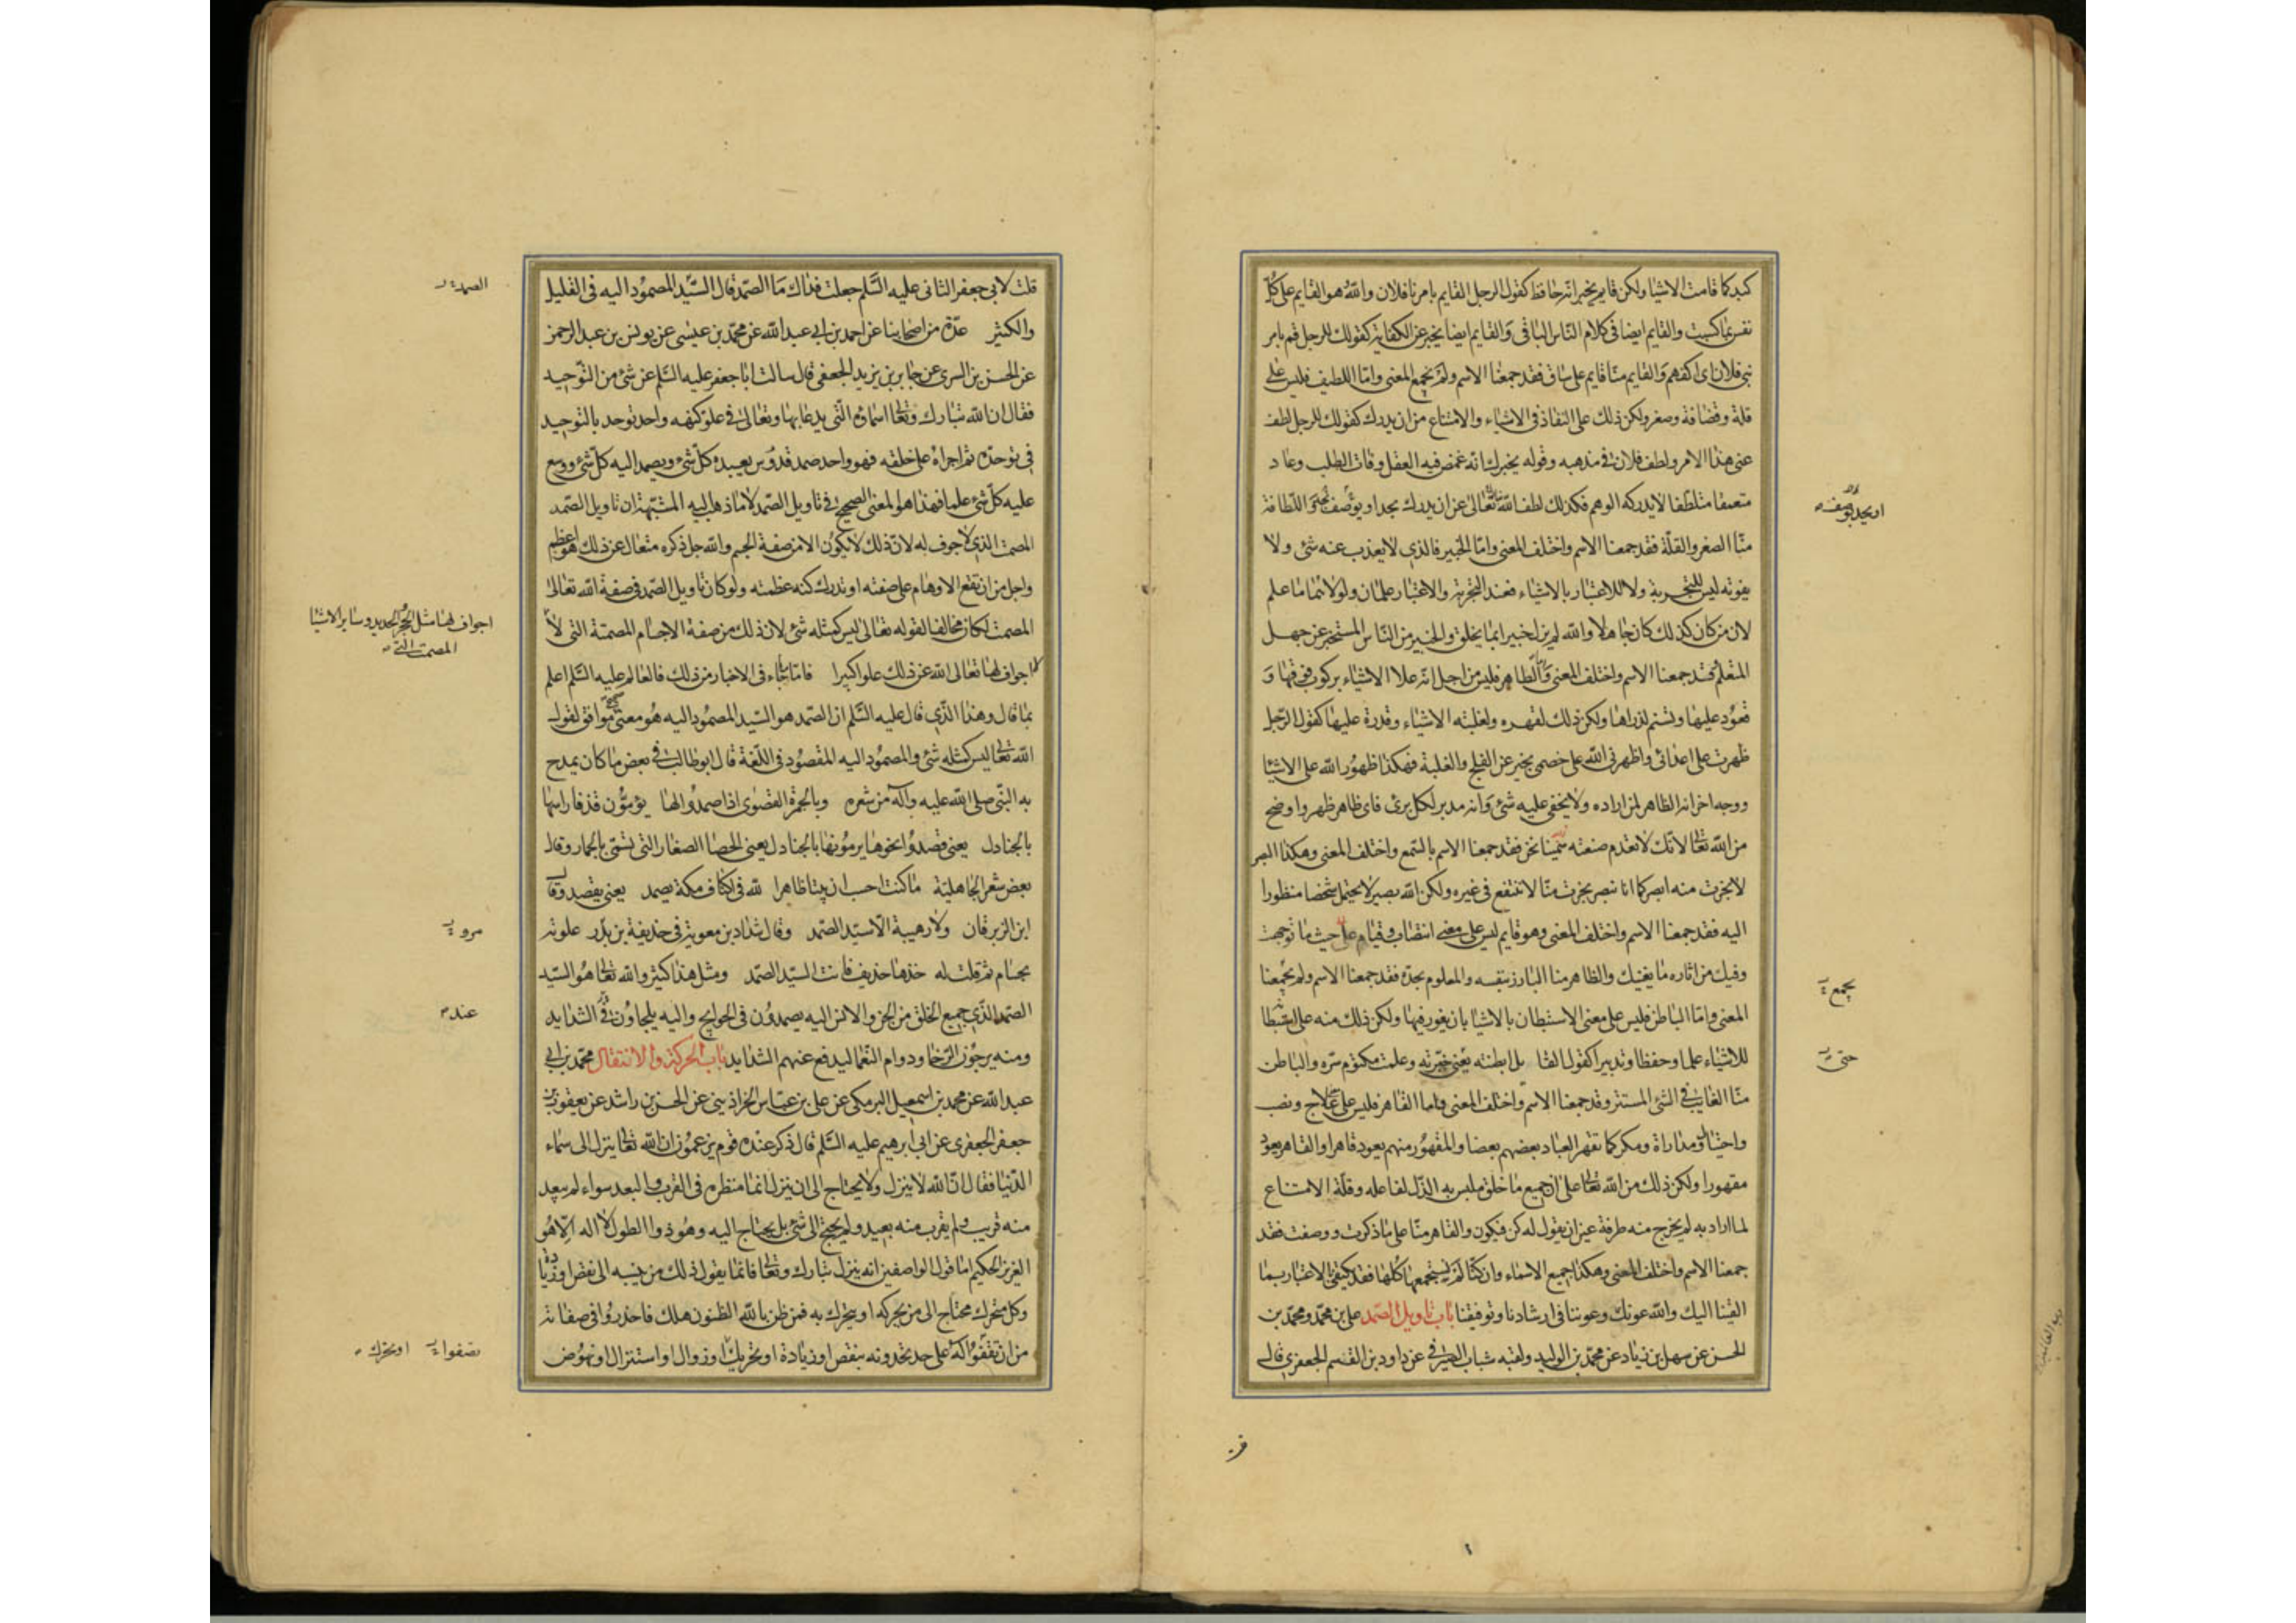 كبد كما قامت الاشيا ولكن قايم يخبر انه حافظ كقول الرجل القايم بامرنا فلان والله هو القايم على كل
نفس بما كسبت والقايم ايضا فى كلام الناس الباقى والقايم ايضا يخبر عن الكفاية كقولك للرجل قم بامر
بنى فلان اى اكفهم والقايم منا قايم على ساق فقد جمعنا الاسم ولم يجمع المعنى واما اللطيف فليس على
قلة وقضافة وصغر ولكن ذلك على النفاذ فى الاشياء والامتناع من ان يدرك كقولك للرجل لطف
عنى هذا الامر ولطف فلان فى مذهبه وقوله يخبرك انه غمض فيه العقل وفات الطلب وعاد
متعمقا متلطفا لا يدركه الوهم فكذلك لطف الله تبارك وتعالى عن ان يدرك بحد او يوصف واللطافة
او يحد بوصف
منا الصغر والقلة فقد جمعنا الاسم واختلف المعنى واما الخبير فالذى لا يعذب عنه شئ ولا
يفوته ليس للتجربة ولا للاعتبار بالاشياء فعند التجربة والاعتبار علمان ولولاهما ما علم
لان من كان كذلك كان جاهلا والله لم يزل خبيرا بما يخلق والخبير من الناس المستخبر عن جهل
المتعلم فقد جمعنا الاسم واختلف المعنى واما الظاهر فليس من اجل انه علا الاشياء بركوب فوقها و
قعود عليها وتسنم لذراها ولكن ذلك لقهره ولغلبته الاشياء وقدرة عليها كقول الرجل
ظهرت على اعدائى واظهرنى الله على خصمى يخبر عن الفلج والغلبة فهكذا ظهور الله على الاشيا
ووجه اخر انه الظاهر لمن اراده ولا يخفى عليه شئ وانه مدبر لكل برئ فاى ظاهر ظهر واوضح
من الله تعالى لانك لا تعدم صنعته سمينا نحن فقد جمعنا الاسم بالسمع واختلف المعنى وهكذا البصر
لا بخرت منه ابصر كما انا نبصر بخرت منا لا ننتفع فى غيره ولكن الله بصير لا يحتمل شخصا منظورا
اليه فقد جمعنا الاسم واختلف المعنى وهو قايم ليس على معنى انتصاب وقيام على حيث ما توجهت
وفيك من اثاره ما يغنيك والظاهر منا البارز بنفسه والمعلوم بحده فقد جمعنا الاسم ولم يجمعنا
يجمع
المعنى واما الباطن فليس على معنى الاستبطان بالاشيا بان يغور فيها ولكن ذلك منه على استبطا
للاشياء علما وحفظا وتدبيرا كقول القا بل ابطنته يعنى خبرته وعلمت مكتوم سره والباطن
منا الغايب فى الشئ المستتر وقد جمعنا الاسم واختلف المعنى واما القاهر فليس على علاج ونصب
واحتيال ومداراة ومكر كما تقهر العباد بعضهم بعضا والمقهور منهم يعود قاهرا والقاهر يعود
مقهورا ولكن ذلك من الله تعالى على ان جميع ما خلق ملبس به الذل لفاعله وقلة الامتناع
لما اراد به لم يخرج منه طرفة عين ان يقول له كن فيكون والقاهر منا على ما ذكرت ووصفت فقد
جمعنا الاسم واختلف المعنى وهكذا جميع الاسماء وان كنا لم نستجمعها كلها فقد يكتفى الاعتبار بما
القينا اليك والله عونك وعوننا فى ارشادنا وتوفيقنا باب تاويل الصمد على بن محمد ومحمد بن
الحسن عن سهل بن زياد عن محمد بن الوليد ولقبه شباب الصيرفى عن داود بن القسم الجعفرى قال
قلت لابى جعفر الثانى عليه السلم جعلت فداك ما الصمد قال السيد المصمود اليه فى القليل
الصمد
والكثير عدة من اصحابنا عن احمد بن ابى عبد الله عن محمد بن عيسى عن يونس بن عبد الرحمن
عن الحسن بن السرى عن جابر بن يزيد الجعفى قال سالت ابا جعفر عليه السلم عن شئ من التوحيد
فقال ان الله تبارك وتعالى اسماؤه التى يدعا بها وتعالى فى علو كنهه واحد توحد بالتوحيد
فى توحده ثم اجراه على خلقه فهو واحد صمد قدوس يعبده كل شئ ويصمد اليه كل شئ ووسع
عليه كل شئ علما فهذا هو المعنى الصحيح فى تاويل الصمد لا ما ذهب اليه المشبهة ان تاويل الصمد
المصمت الذى لا جوف له لان ذلك لا يكون الا من صفة الجسم والله جل ذكره متعال عن ذلك هو اعظم
واجل من ان تقع الاوهام على صفته او تدرك كنه عظمته ولو كان تاويل الصمد فى صفة الله تعالى
المصمت لكان مخالفا لقوله تعالى ليس كمثله شئ لان ذلك من صفة الاجسام المصمتة التى لا
اجواف لها مثل الحجر والحديد وساير الاشيا
المصمتة التى
اجواف لها تعالى الله عن ذلك علوا كبيرا فاما ما جاء فى الاخبار من ذلك فالعالم عليه السلم اعلم
بما قال وهذا الذى قال عليه السلم ان الصمد هو السيد المصمود اليه هو معنى صحيح موافق لقول
الله تعالى ليس كمثله شئ والمصمود اليه المقصود فى اللغة قال ابو طالب فى بعض ما كان يمدح
به النبى صلى الله عليه وآله من شعره وبالجمرة القصوى اذا صمدوا لها يؤمون قذفا راسها
بالجنادل يعنى قصدوا نحوها يرمونها بالجنادل يعنى الحصا الصغار التى تسمى بالجمار وقال
بعض شعر الجاهلية ما كنت احسب ان بيتا ظاهرا لله فى اكناف مكة يصمد يعنى يقصد وقال
ابن الزبرقان ولا رهيبة الا سيد الصمد وقال شداد بن معوية فى حذيفة بن بدر علوته
بحسام ثم قلت له خذها حذيف فانت السيد الصمد ومثل هذا كثير والله تعالى هو السيد
الصمد الذى جميع الخلق من الجن والانس اليه يصمدون فى الحوايج واليه يلجاؤن فى الشدايد
عند
ومنه يرجون الرخا ودوام النعما ليدفع عنهم الشدايد باب الحركة والانتقال محمد بن ابى
عبد الله عن محمد بن اسمعيل البرمكى عن على بن عباس الخراذينى عن الحسن بن راشد عن يعقوب بن
جعفر الجعفرى عن ابى ابرهيم عليه السلم قال ذكر عنده قوم يزعمون ان الله تعالى ينزل الى سماء
الدنيا فقال ان الله لا ينزل ولا يحتاج الى ان ينزل انما منظره فى القرب والبعد سواء لم يبعد
منه قريب ولم يقرب منه بعيد ولم يحتج الى شئ بل يحتاج اليه وهو ذو الطول لا اله الا هو
العزيز الحكيم اما قول الواصفين انه ينزل تبارك وتعالى فانما يقول ذلك من ينسبه الى نقص او زيادة
وكل متحرك محتاج الى من يحركه او يتحرك به فمن ظن بالله الظنون هلك فاحذروا فى صفاته
من ان تقفوا له على حد تحدونه بنقص او زيادة او تحريك او زوال او استنزال او نهوض
تصفوا او تحرك